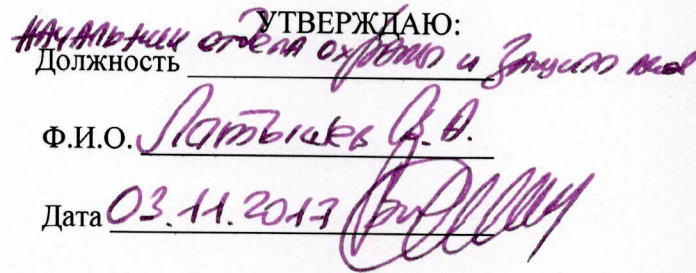 УТВЕРЖДАЮ:
Должность начальник отдела охраны и защиты лесов
Ф.И.О. Латышев В.А.
Дата 03.11.2017